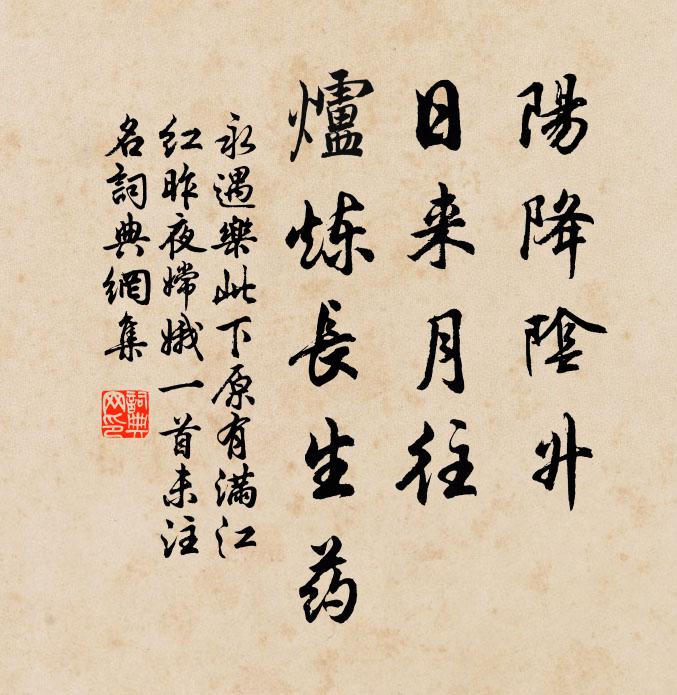 陽降陰升
日来月往
爐炼長生药
永遇樂此下原有滿江
红昨夜嫦娥一首未注
名詞典網集
詞典
网印